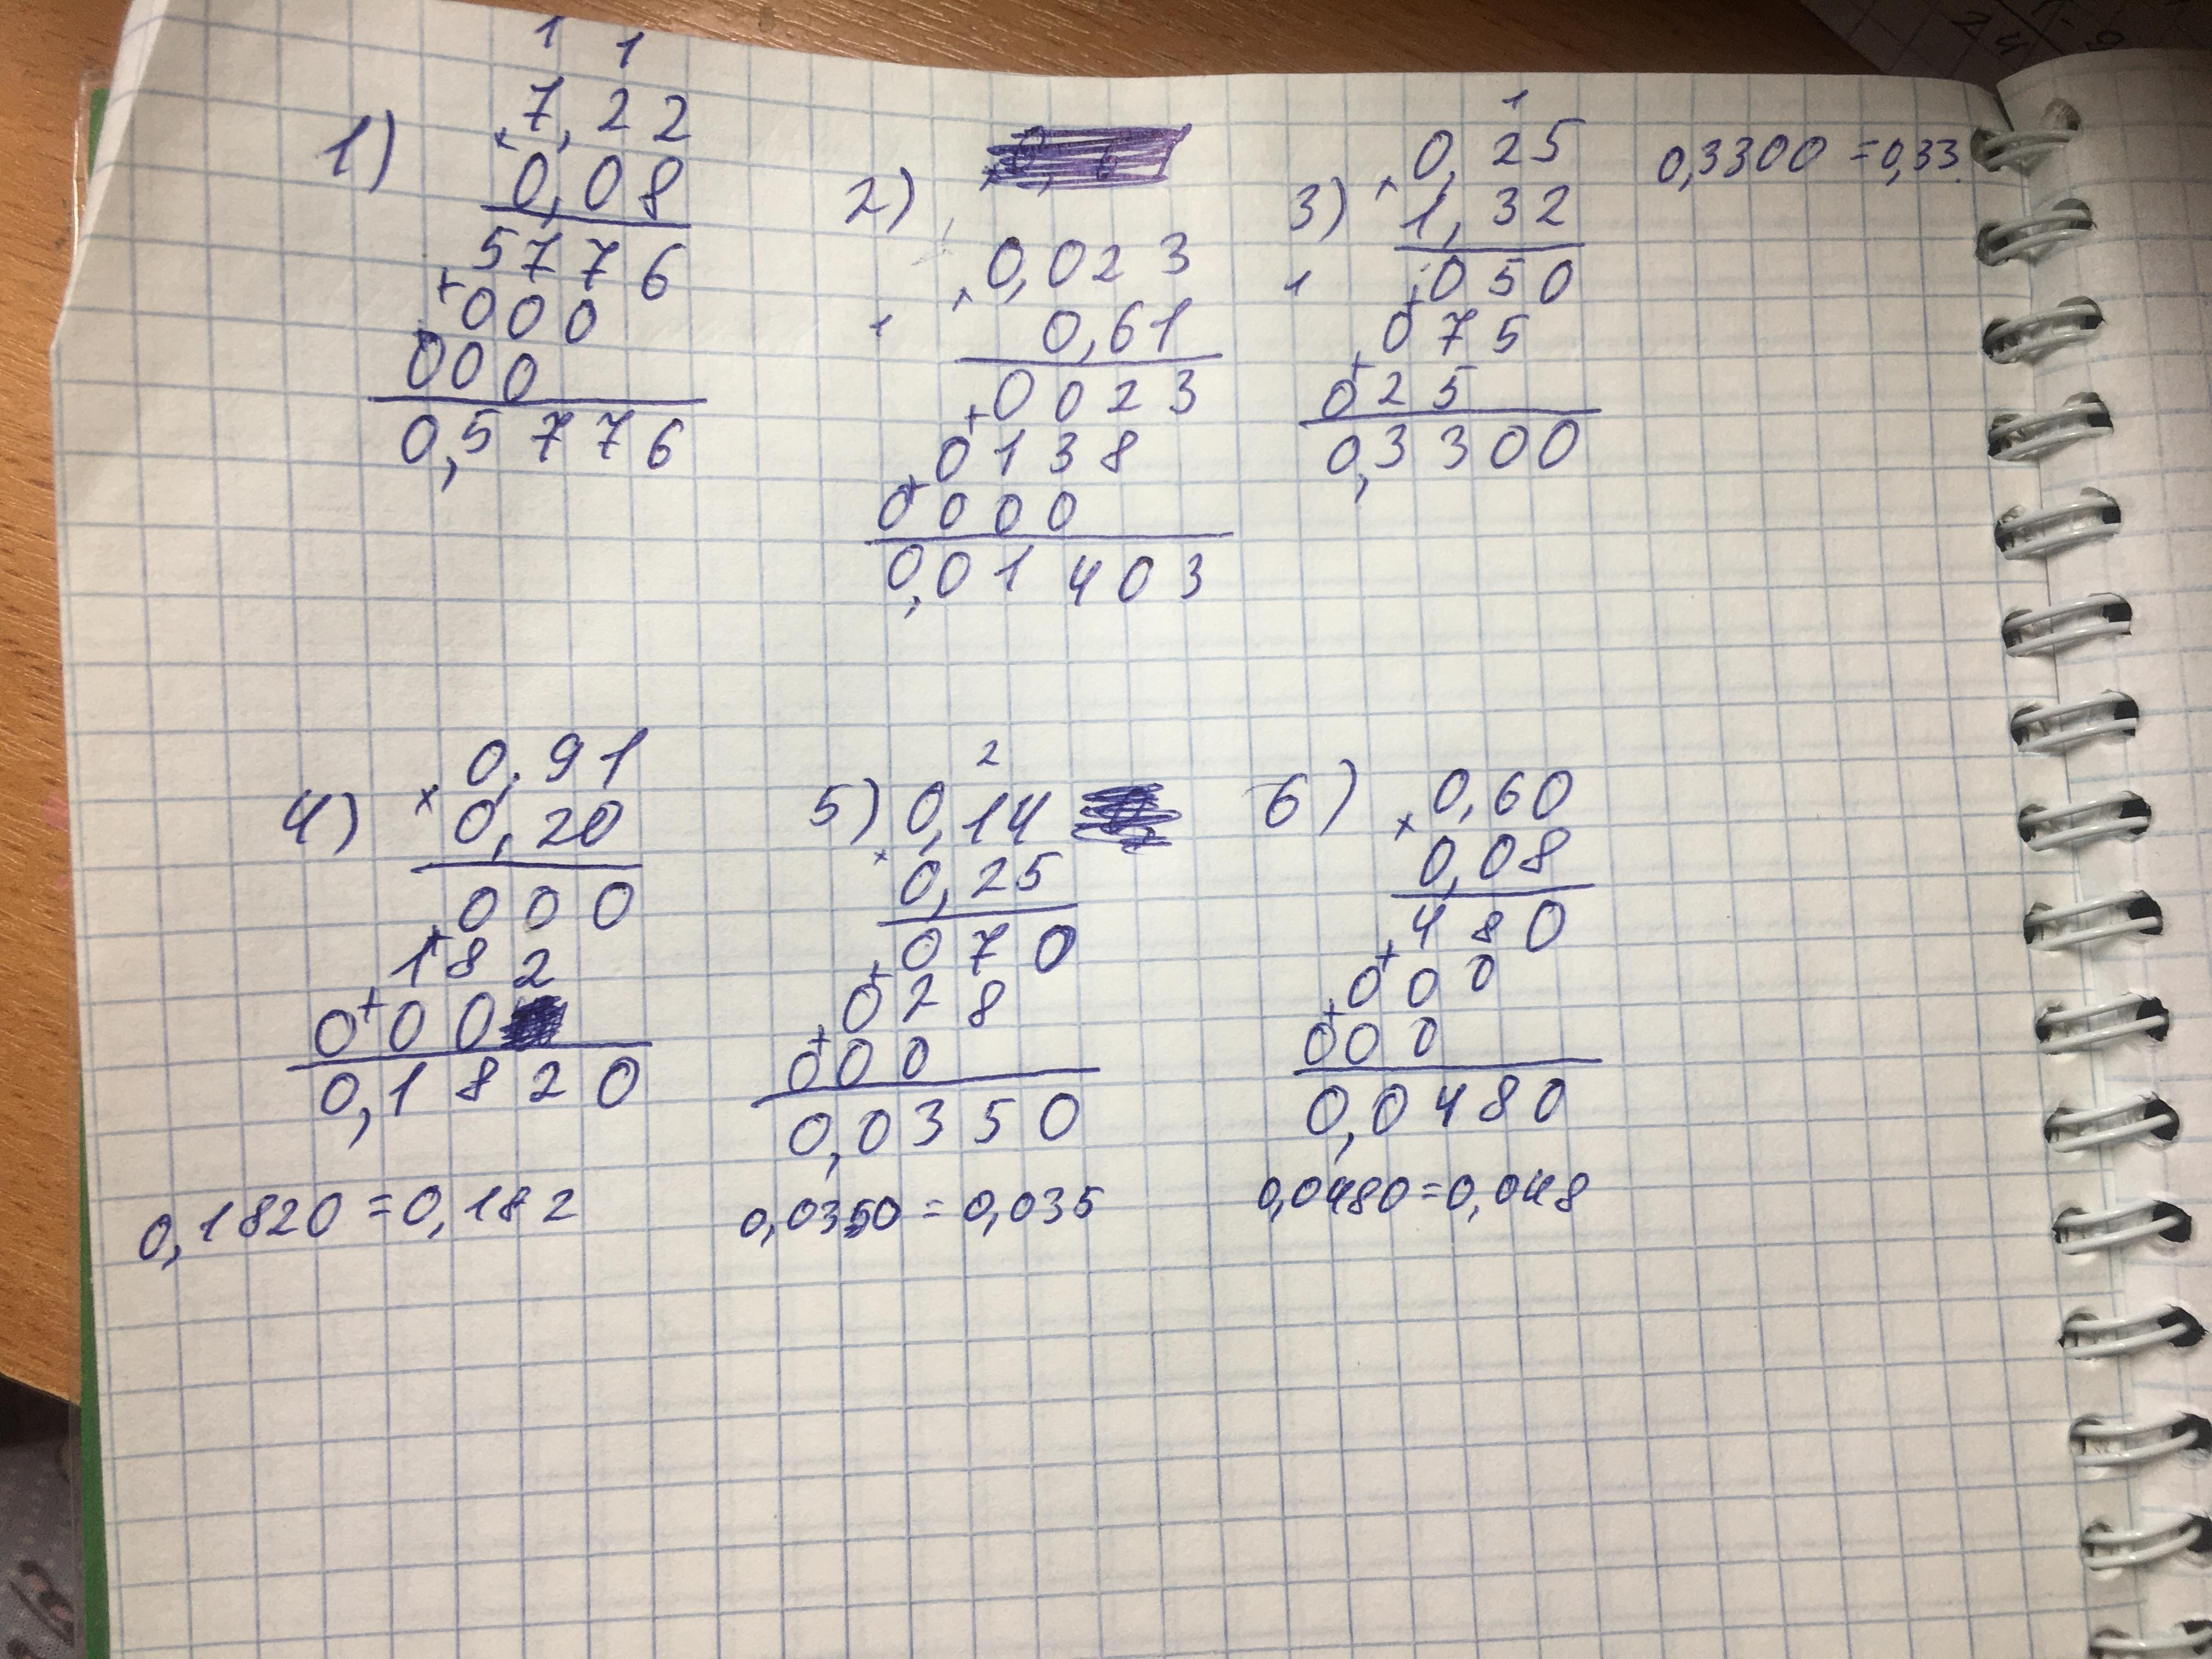 1 1
1) 7,22
× 0,08
5776
+ 000
000
0,5776
2)
0,023
×
1 0,61
0023
+
0138
+
0000
0,01403
1
3) 0,25
× 1,32
1 050
+
075
+
025
0,3300
0,3300 = 0,33.
4) 0,91
× 0,20
000
+
182
+
000
0,1820
0,1820 = 0,182
2
5) 0,14
×
0,25
070
+
028
+
000
0,0350
0,0350 = 0,035
6) 0,60
×
0,08
480
+
000
+
000
0,0480
0,0480 = 0,048